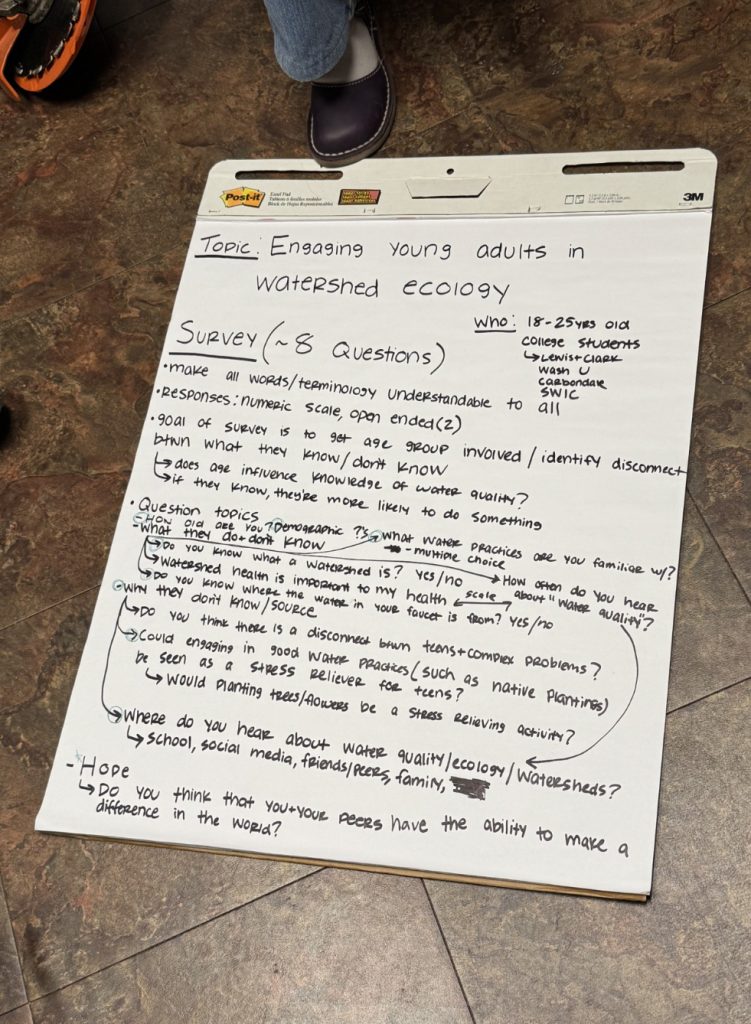 Post-it
Easel Pad
3M
Topic: Engaging young adults in
watershed ecology
Who: 18-25yrs old
college students
↳Lewis+Clark
Wash U
Carbondale
SWIC
Survey (~8 Questions)
•make all words/terminology understandable to all
•Responses: numeric scale, open ended(2)
•goal of survey is to get age group involved/identify disconnect
btwn what they know/don't know
↳does age influence knowledge of water quality?
↳if they know, they're more likely to do something
•Question topics
-How old are you? Demographic ?'s
-What they do+don't know
→What water practices are you familiar w/?
- multiple choice
↳Do you know what a watershed is? yes/no
→How often do you hear
about "water quality"?
↳Watershed health is important to my health ↔ scale
↳Do you know where the water in your faucet is from? yes/no
-Why they don't know/source
↳Do you think there is a disconnect btwn teens+complex problems?
↳Could engaging in good water practices (such as native plantings)
be seen as a stress reliever for teens?
↳Would planting trees/flowers be a stress relieving activity?
↳Where do you hear about water quality/ecology/watersheds?
↳School, social media, friends/peers, family,
-Hope
↳Do you think that you+your peers have the ability to make a
difference in the world?